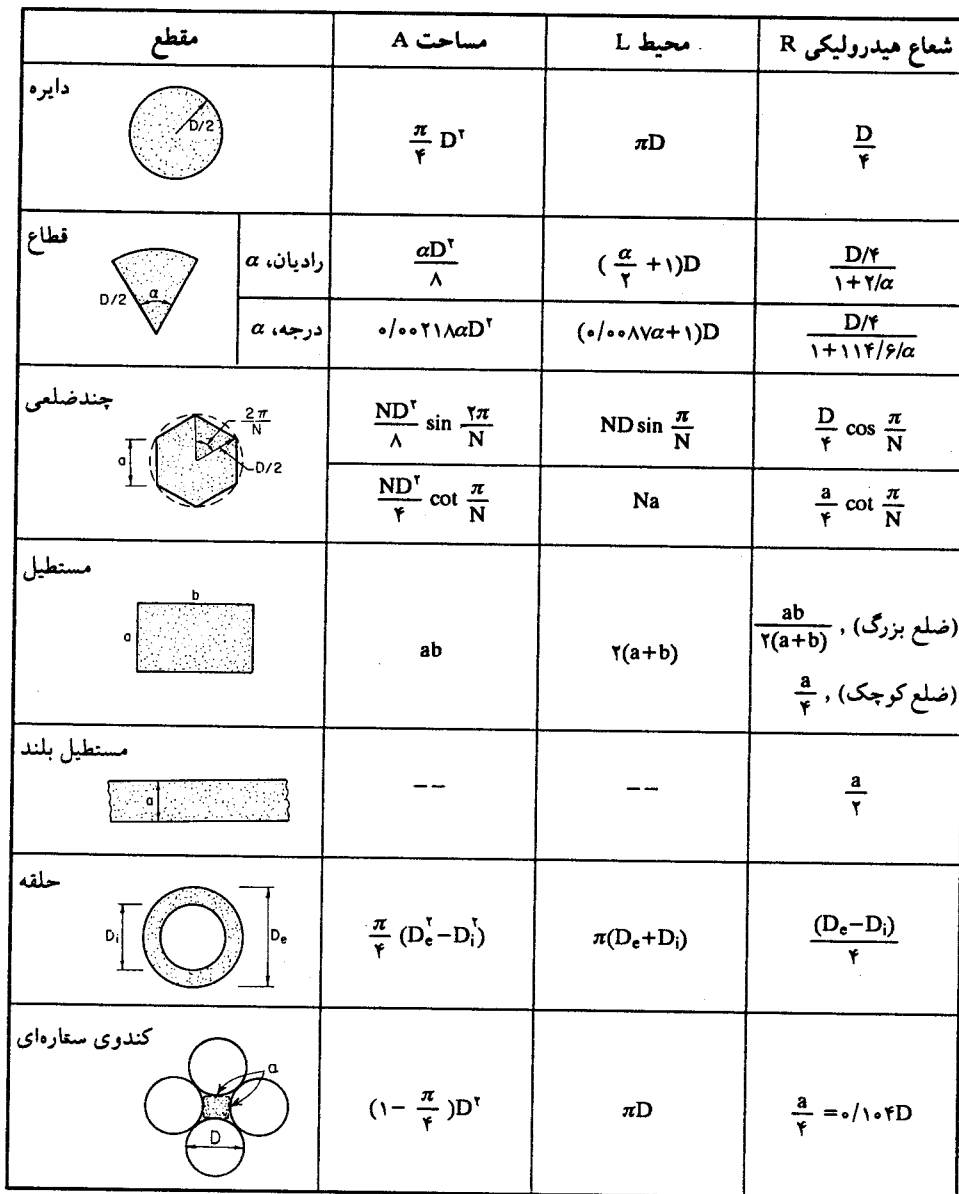 مقطع	مساحت A	محیط L	شعاع هیدرولیکی R
دایره
D/2
π/۴ D^۲	πD	D/۴
قطاع
D/2 α
رادیان، α	αD^۲/۸	(α/۲ +۱)D	D/۴ / ۱+۲/α
درجه، α	۰/۰۰۲۱۸αD^۲	(۰/۰۰۸۷α+۱)D	D/۴ / ۱+۱۱۴/۶/α
چندضلعی
2π/N
a
D/2
ND^۲/۸ sin ۲π/N	ND sin π/N	D/۴ cos π/N
ND^۲/۴ cot π/N	Na	a/۴ cot π/N
مستطیل
b
a
ab	۲(a+b)	(ضلع بزرگ) , ab/۲(a+b)
(ضلع کوچک) , a/۴
مستطیل بلند
a
--	--	a/۲
حلقه
D_i D_e
π/۴ (D_e^۲−D_i^۲)	π(D_e+D_i)	(D_e−D_i)/۴
کندوی ستاره‌ای
a
D
(۱− π/۴)D^۲	πD	a/۴ =۰/۱۰۴D